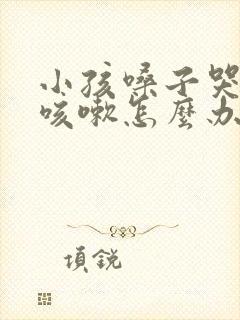 小孩嗓子哭
咳嗽怎麼办
項銳